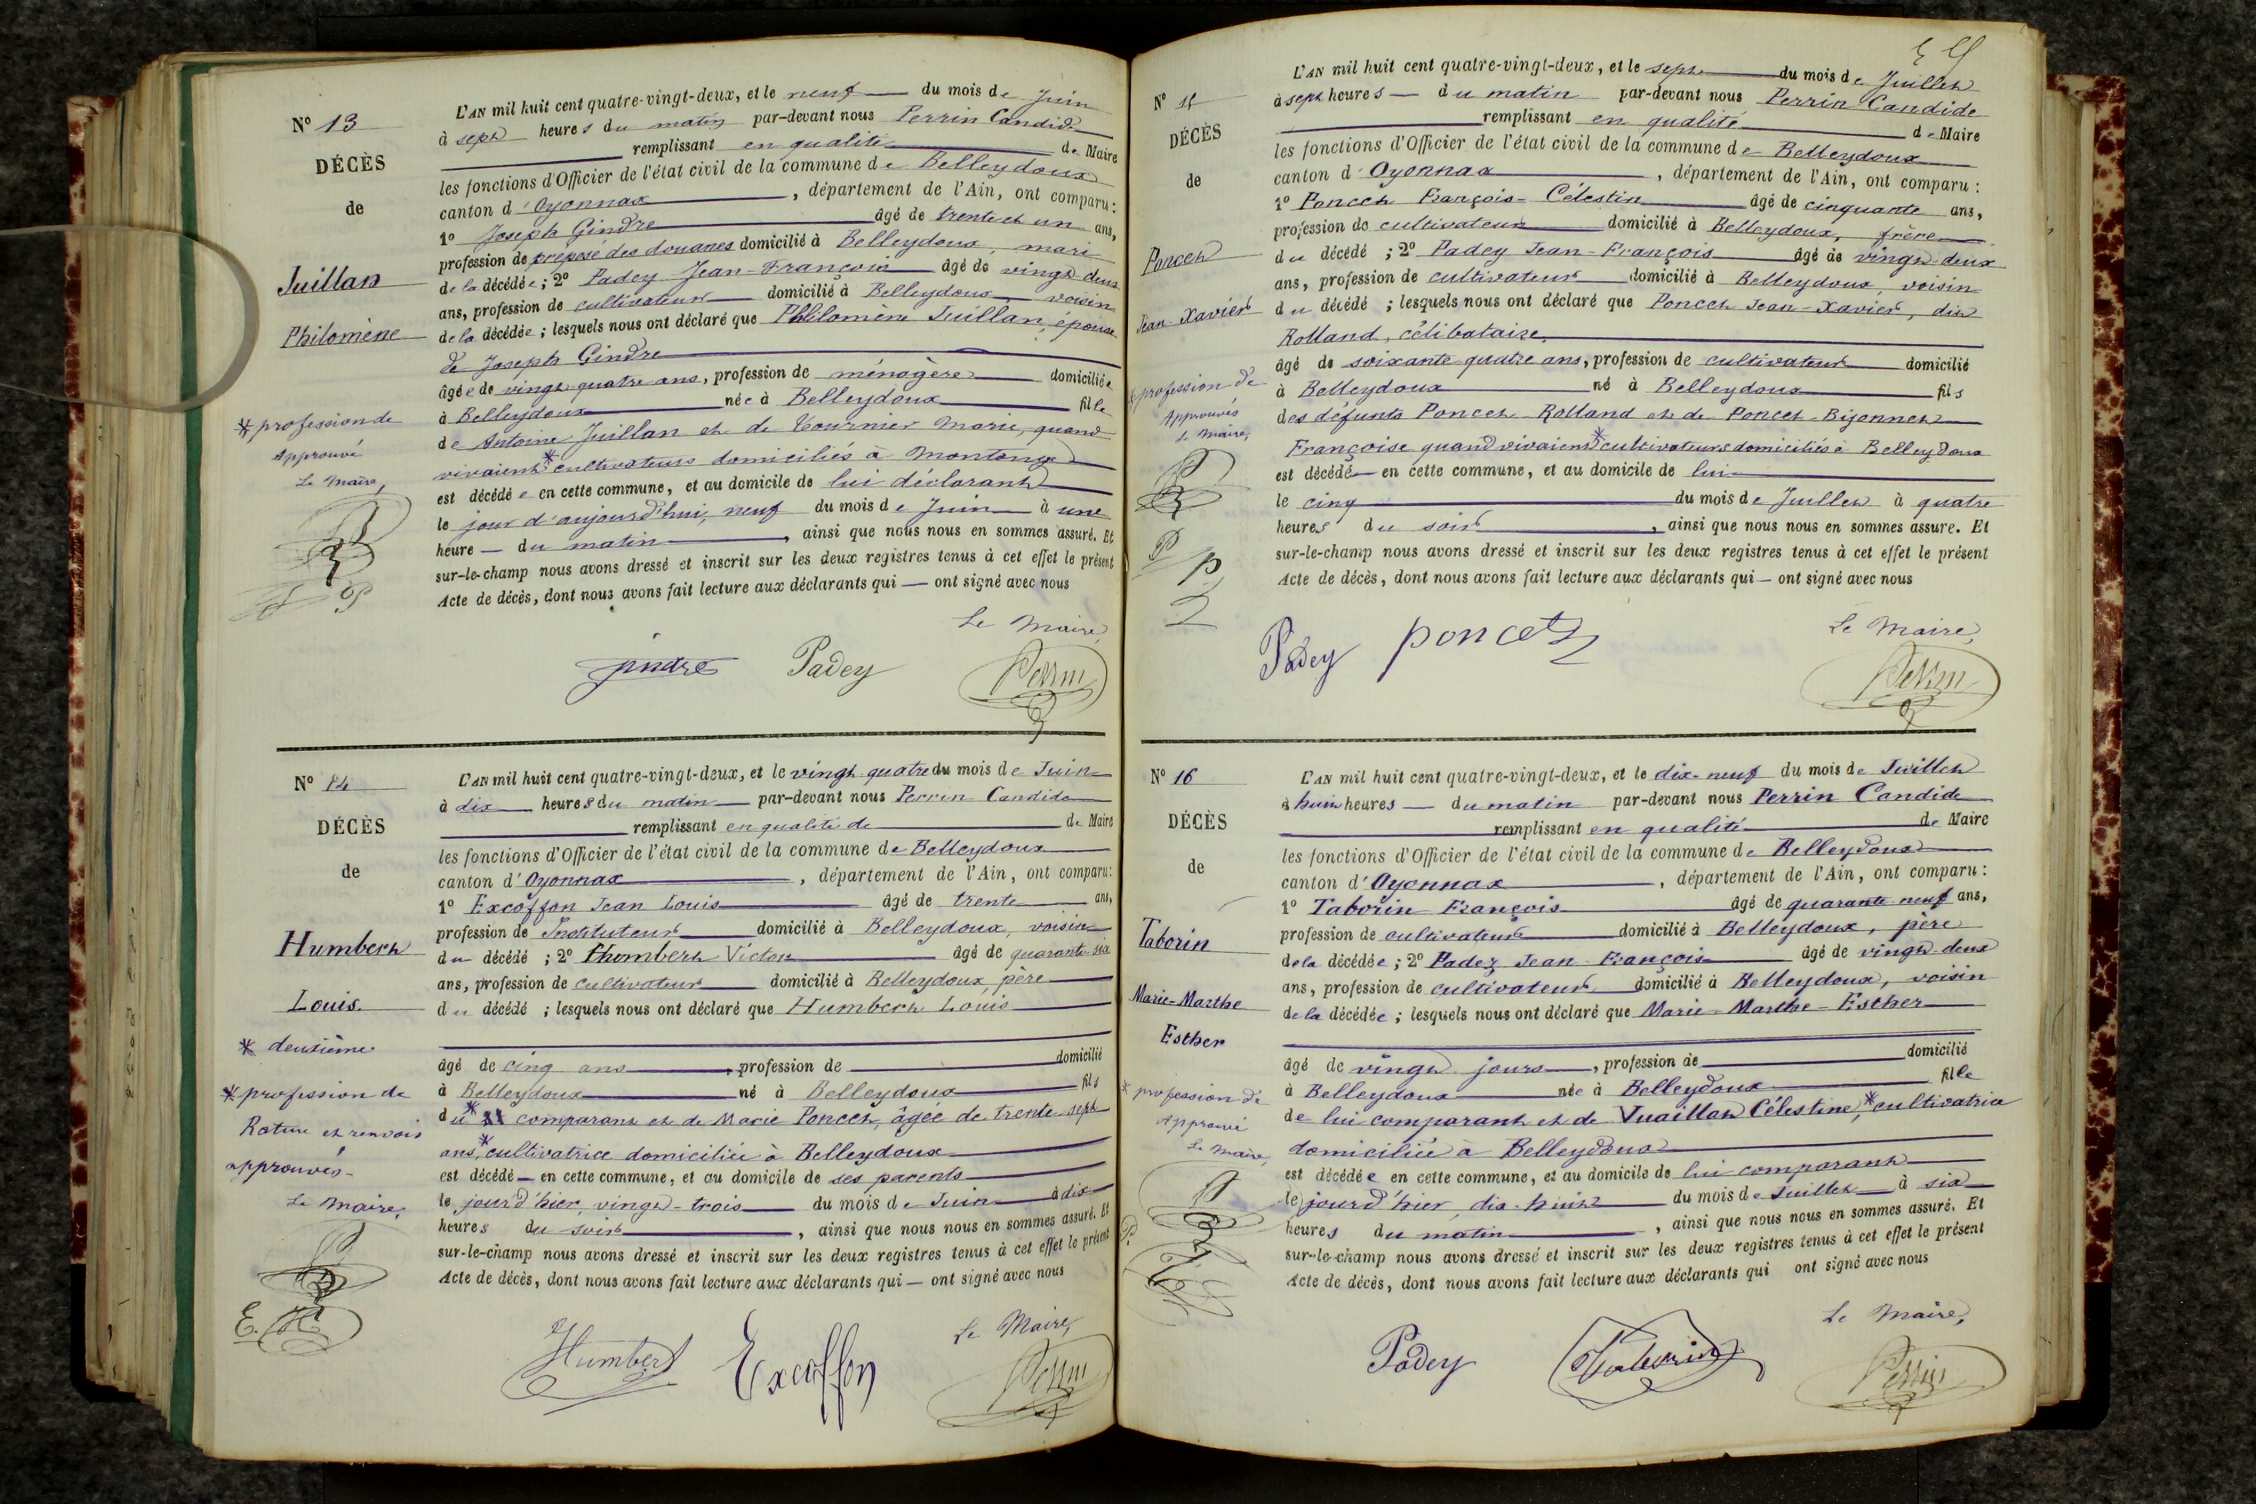 N° 13
DÉCÈS
de
Juillan
Philomène
* profession de
Approuvé
Le Maire,
L'AN mil huit cent quatre-vingt-deux, et le neuf du mois de Juin
à sept heures du matin par-devant nous Perrin Candide
remplissant en qualité de Maire
les fonctions d'Officier de l'état civil de la commune de Belleydoux
canton d'Oyonnax, département de l'Ain, ont comparu:
1° Joseph Gindre âgé de trente et un ans,
profession de préposé des douanes domicilié à Belleydoux, mari
de la décédée; 2° Padey Jean-François âgé de vingt-deux
ans, profession de cultivateur domicilié à Belleydoux, voisin
de la décédée; lesquels nous ont déclaré que Philomène Juillan, épouse
de Joseph Gindre
âgée de vingt quatre ans, profession de ménagère domiciliée
à Belleydoux née à Belleydoux fille
de Antoine Juillan et de Tournier Marie, quand
vivaient * cultivateurs domiciliés à Montange
est décédée en cette commune, et au domicile de lui déclarant
le jour d'aujourd'hui, neuf du mois de Juin à une
heure — du matin, ainsi que nous nous en sommes assuré. Et
sur-le-champ nous avons dressé et inscrit sur les deux registres tenus à cet effet le présent
Acte de décès, dont nous avons fait lecture aux déclarants qui — ont signé avec nous
Le Maire,
Padey Perrin
N° 14
DÉCÈS
de
Humbert
Louis.
* deuxième
* profession de
Rature et renvois
approuvés.
Le Maire,
E.
L'AN mil huit cent quatre-vingt-deux, et le vingt quatre du mois de Juin
à dix heures du matin par-devant nous Perrin Candide
remplissant en qualité de de Maire
les fonctions d'Officier de l'état civil de la commune de Belleydoux
canton d'Oyonnax, département de l'Ain, ont comparu:
1° Excoffon Jean Louis âgé de trente ans,
profession de Instituteur domicilié à Belleydoux, voisin
du décédé; 2° Humbert Victor âgé de quarante six
ans, profession de cultivateur domicilié à Belleydoux, père
du décédé; lesquels nous ont déclaré que Humbert Louis
âgé de cinq ans, profession de domicilié
à Belleydoux né à Belleydoux fils
du * comparant et de Marie Poncet, âgée de trente-sept
ans, * cultivatrice domiciliée à Belleydoux
est décédé — en cette commune, et au domicile de ses parents
le jour d'hier, vingt-trois du mois de Juin à dix
heures du soir, ainsi que nous nous en sommes assuré. Et
sur-le-champ nous avons dressé et inscrit sur les deux registres tenus à cet effet le présent
Acte de décès, dont nous avons fait lecture aux déclarants qui — ont signé avec nous
Le Maire,
Humbert Excoffon Perrin
N° 15
DÉCÈS
de
Poncet
Jean-Xavier
* profession de
Approuvés
Le Maire,
L'AN mil huit cent quatre-vingt-deux, et le sept du mois de Juillet
à sept heures — du matin par-devant nous Perrin Candide
remplissant en qualité de Maire
les fonctions d'Officier de l'état civil de la commune de Belleydoux
canton d'Oyonnax, département de l'Ain, ont comparu:
1° Poncet François-Célestin âgé de cinquante ans,
profession de cultivateur domicilié à Belleydoux, frère
du décédé; 2° Padey Jean-François âgé de vingt-deux
ans, profession de cultivateur domicilié à Belleydoux, voisin
du décédé; lesquels nous ont déclaré que Poncet Jean-Xavier, dit
Rolland, célibataire,
âgé de soixante quatre ans, profession de cultivateur domicilié
à Belleydoux né à Belleydoux fils
des défunts Poncet-Rolland et de Poncet-Bijonnet
Françoise quand vivaient * cultivateurs domiciliés à Belleydoux
est décédé — en cette commune, et au domicile de lui
le cinq du mois de Juillet à quatre
heures du soir, ainsi que nous nous en sommes assuré. Et
sur-le-champ nous avons dressé et inscrit sur les deux registres tenus à cet effet le présent
Acte de décès, dont nous avons fait lecture aux déclarants qui — ont signé avec nous
Le Maire,
Padey poncet Perrin
N° 16
DÉCÈS
de
Taborin
Marie-Marthe
Esther
* profession de
Approuvé
Le Maire,
L'AN mil huit cent quatre-vingt-deux, et le dix-neuf du mois de Juillet
à huit heures — du matin par-devant nous Perrin Candide
remplissant en qualité de Maire
les fonctions d'Officier de l'état civil de la commune de Belleydoux
canton d'Oyonnax, département de l'Ain, ont comparu:
1° Taborin François âgé de quarante neuf ans,
profession de cultivateur domicilié à Belleydoux, père
de la décédée; 2° Padey Jean-François âgé de vingt-deux
ans, profession de cultivateur domicilié à Belleydoux, voisin
de la décédée; lesquels nous ont déclaré que Marie-Marthe-Esther
âgé de vingt jours, profession de domicilié
à Belleydoux née à Belleydoux fille
de lui comparant et de Vuaillat Célestine, * cultivatrice
domiciliée à Belleydoux
est décédée en cette commune, et au domicile de lui comparant
le jour d'hier, dix-huit du mois de Juillet à six
heures du matin, ainsi que nous nous en sommes assuré. Et
sur-le-champ nous avons dressé et inscrit sur les deux registres tenus à cet effet le présent
Acte de décès, dont nous avons fait lecture aux déclarants qui ont signé avec nous
Le Maire,
Padey Taborin Perrin